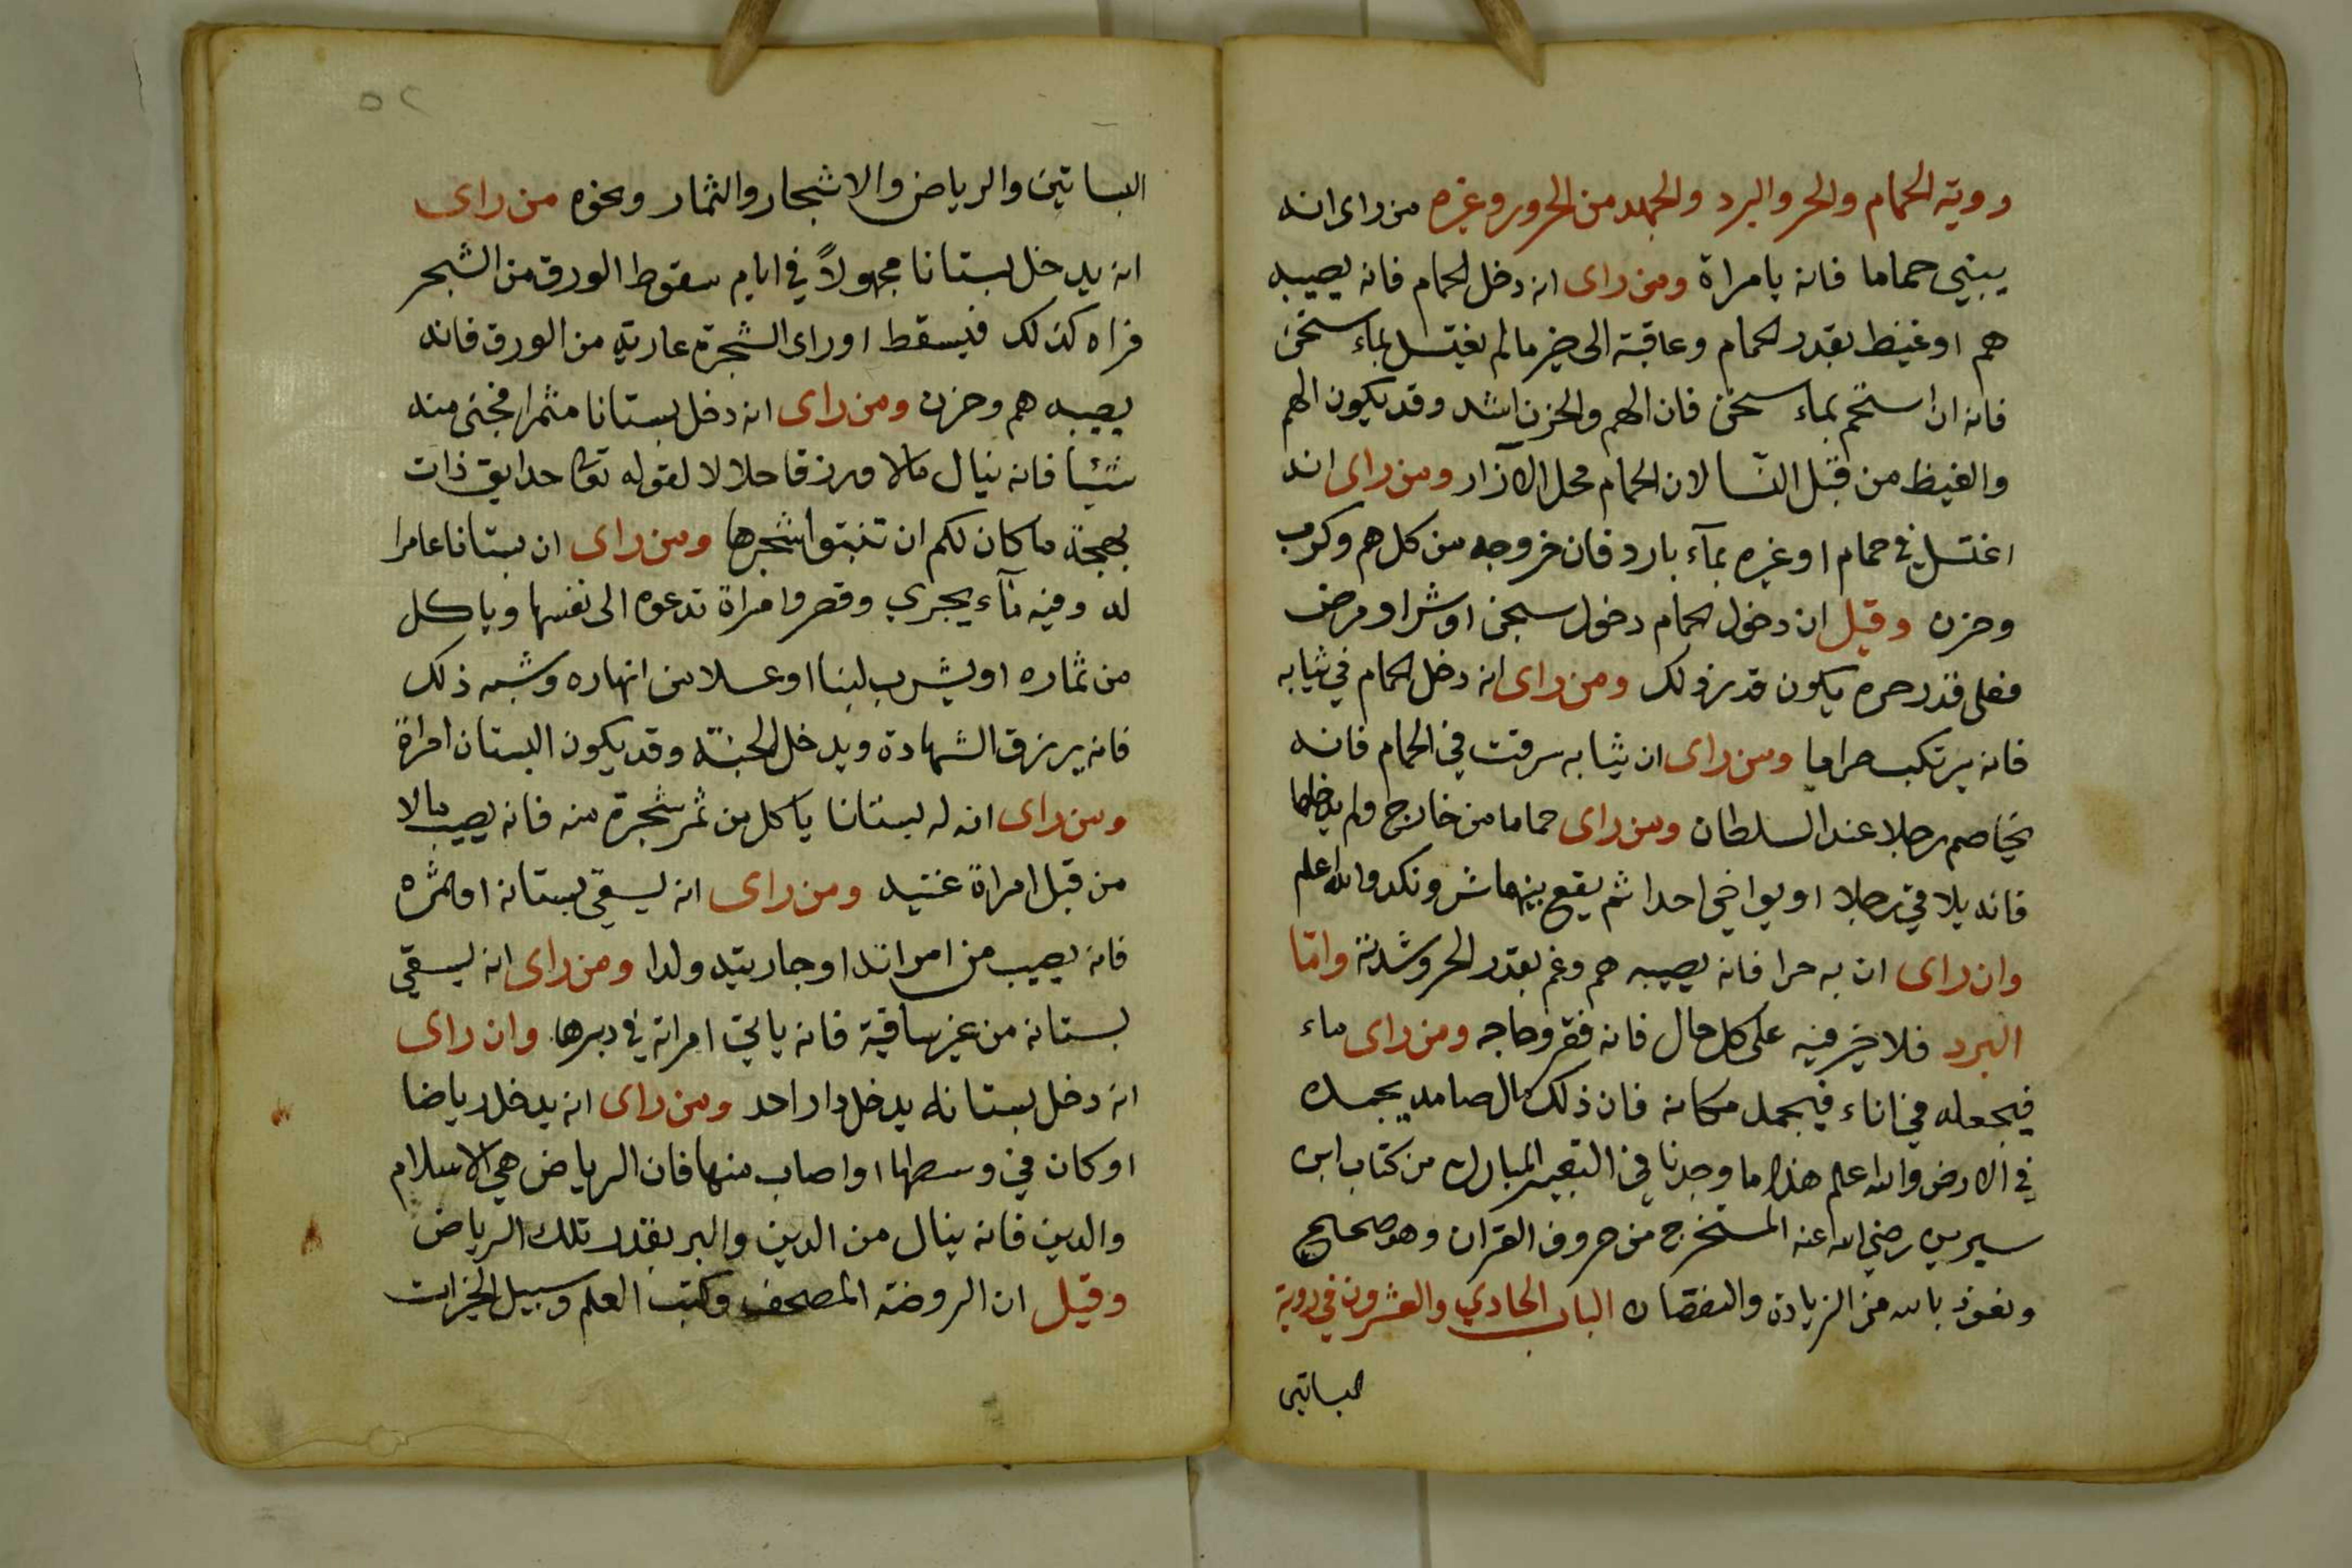 روية الحمام والحر والبرد والجهد من الحرور وغيره من راى انه
يبني حماما فانه يا مراة ومن راى انه دخل الحمام فانه يصيبه
هم او غيظ بقدر الحمام وعاقبة الى خير مالم يغتسل بماء سخن
فانه ان استحم بماء سخن فان الهم والحزن اشد وقد يكون الهم
والغيظ من قبل النسا لان الحمام محل الازار ومن راى انه
اغتسل في حمام او غيره بمآء بارد فان خروجه من كل هم وكرب
وحزن وقيل ان دخول الحمام دخول سجن او شر او مرض
فعلى قدر حره يكون قدر ذلك ومن راى انه دخل الحمام في ثيابه
فانه يرتكب حراما ومن راى ان ثيابه سرقت في الحمام فانه
يخاصم رجلا عند السلطان ومن راى حماما من خارج ولم يدخلها
فانه يلاقي رجلا او يواخي احدا ثم يقع بينهما شر ونكد والله اعلم
وان راى ان به حرا فانه يصيبه هم وغم بقدر الحر وشدته واما
البرد فلا خير فيه على كل حال فانه فقر وحاجه ومن راى ماء
فيجعله في اناء فيجمد مكانه فان ذلك مال صامد يجمده
في الارض والله اعلم هذا ما وجدنا في التعبير المبارك من كتاب ابن
سيرين رضي الله عنه المستخرج من حروف القران وهو صحيح
ونعوذ بالله من الزيادة والنقصان الباب الحادي والعشرون في روية
البساتين
٥٢
البساتين والرياض والاشجار والثمار ونحوه من راى
انه يدخل بستانا مجهولاً في ايام سقوط الورق من الشجر
فراه كذلك فيسقط او راى الشجرة عارية من الورق فانه
يصيبه هم وحزن ومن راى انه دخل بستانا مثمرا فجنى منه
شيئا فانه ينال مالا ورزقا حلالا لقوله تعا حدايق ذات
بهجة ما كان لكم ان تنبتوا شجرها ومن راى ان بستانا عامرا
له وفيه مآء يجري وقصر وامراة تدعوه الى نفسها وياكل
من ثماره او يشرب لبنا او عسلا من انهاره وشبه ذلك
فانه يرزق الشهادة ويدخل الجنة وقد يكون البستان امراة
ومن راى انه له بستانا ياكل من ثمر شجرة منه فانه يصيب مالا
من قبل امراة غنيه ومن راى انه ليسقي بستانه او ثمره
فانه يصيب من امراته او جاريته ولدا ومن راى انه ليسقي
بستانه من غير ساقية فانه ياتي امراته في دبرها وان راى
انه دخل بستانا له يدخل دار احد ومن راى انه يدخل رياضا
او كان في وسطها او اصاب منها فان الرياض هي الاسلام
والدين فانه ينال من الدين والبر بقدر تلك الرياض
وقيل ان الروضة المصحف وكتب العلم وسبيل الخيرات